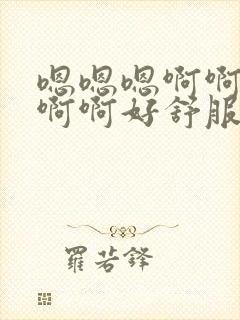 嗯嗯嗯啊啊
啊啊好舒服
羅若鋒